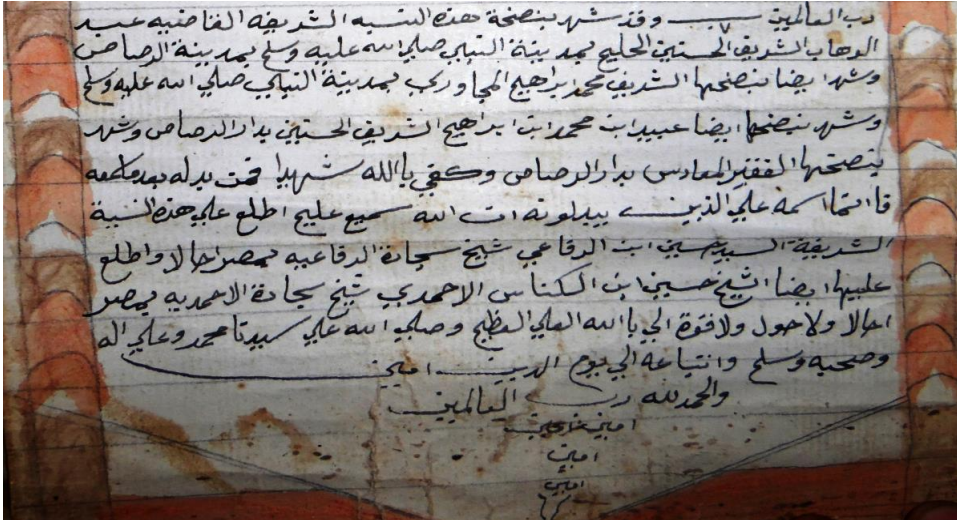 رب العالمين وقد شهد بنصحة هذه النسبه الشريفه القاضيه عبد
الوهاب الشريف الحسنين الخليج بمدينة النبي صلي الله عليه وسلم بمدينة الرصاص
وشهد ايضا بنصحها الشريف محمد ابراهيم المجاوري بمدينة النبي صلي الله عليه وسلم
وشهد بنصحها ايضا عبيد ابن محمد ابن ابراهيم الشريف الحسنين بدار الرصاص وشهد
بنصحها الفقير المعادس بدار الرصاص وكفي بالله شهيدا فمن بدله بعد ما سمعه
فانما اسمه علي الذين يبدلونه ان الله سميع عليم اطلع علي هذه النسبة
الشريفة السيد حسين ابن الرفاعي شيخ سجادة الرفاعيه بمصر احالا واطلع
عليها ايضا الشيخ حسين ابن الكناس الاحمدي شيخ سجادة الاحمديه بمصر
احالا ولا حول ولا قوة الي بالله العلي العظيم وصلي الله علي سيدنا محمد وعلي اله
وصحبه وسلم واتباعه الي يوم الدين امين
والحمد لله رب العالمين
امين
امين
امين